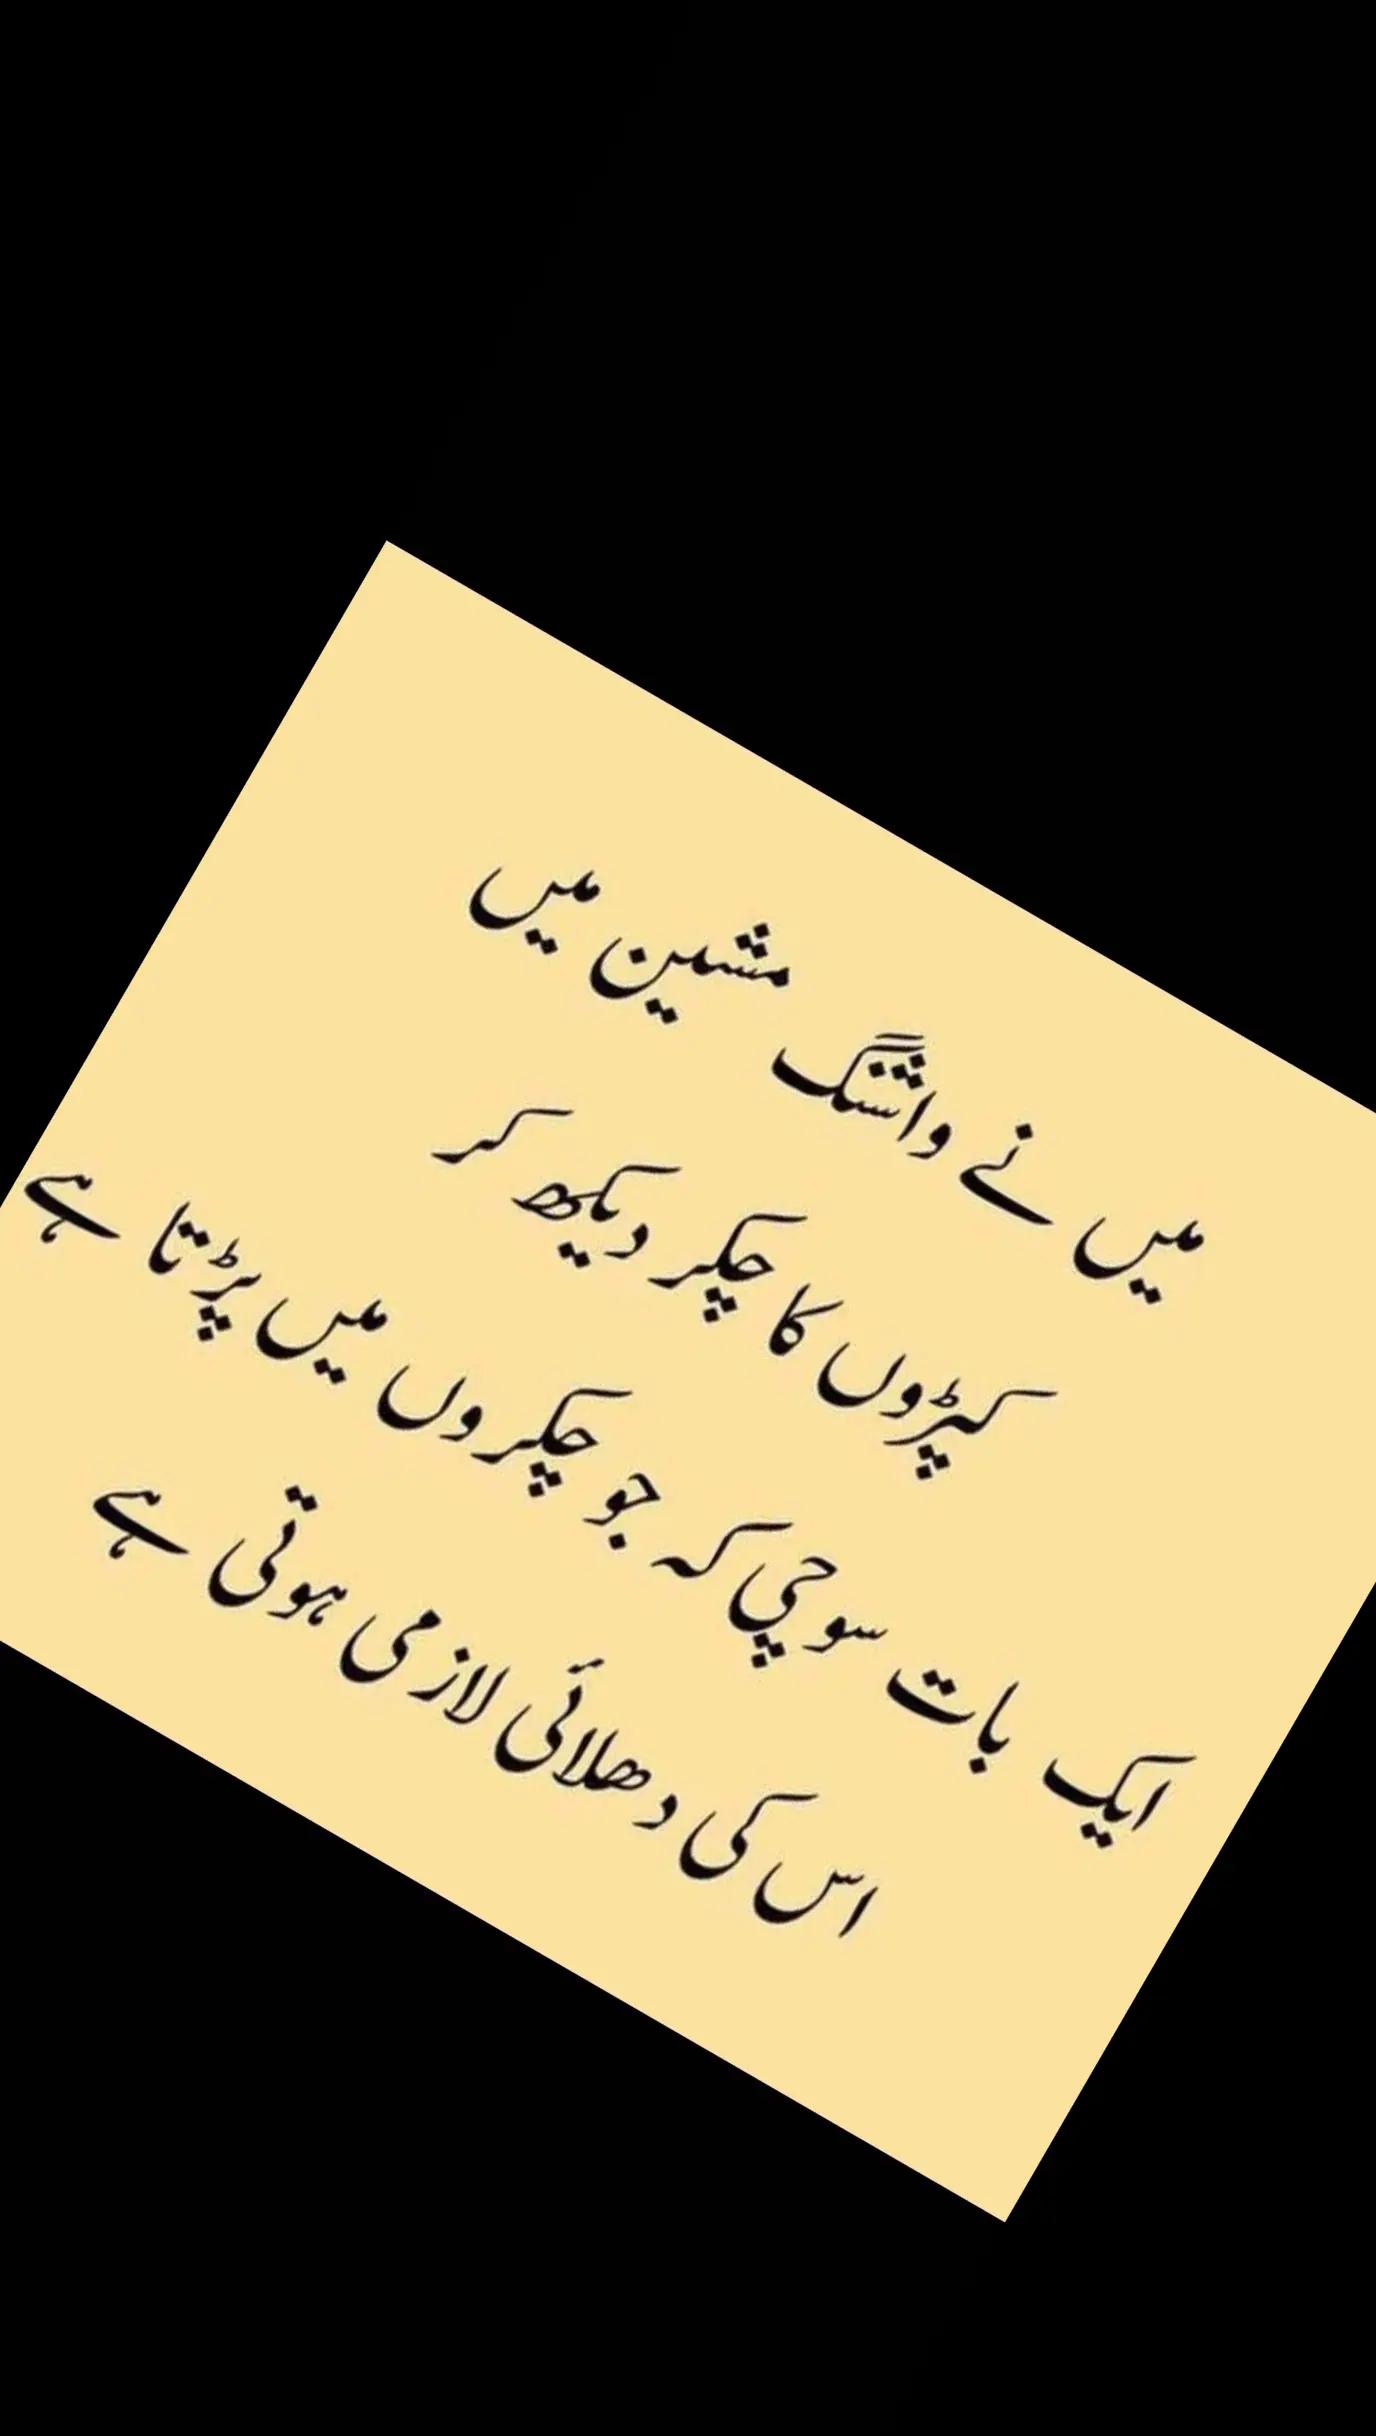 میں نے واشنگ مشین میں
کپڑوں کا چکر دیکھ کر
ایک بات سوچی کہ جو چکروں میں پڑتا ہے
اس کی دھلائی لازمی ہوتی ہے